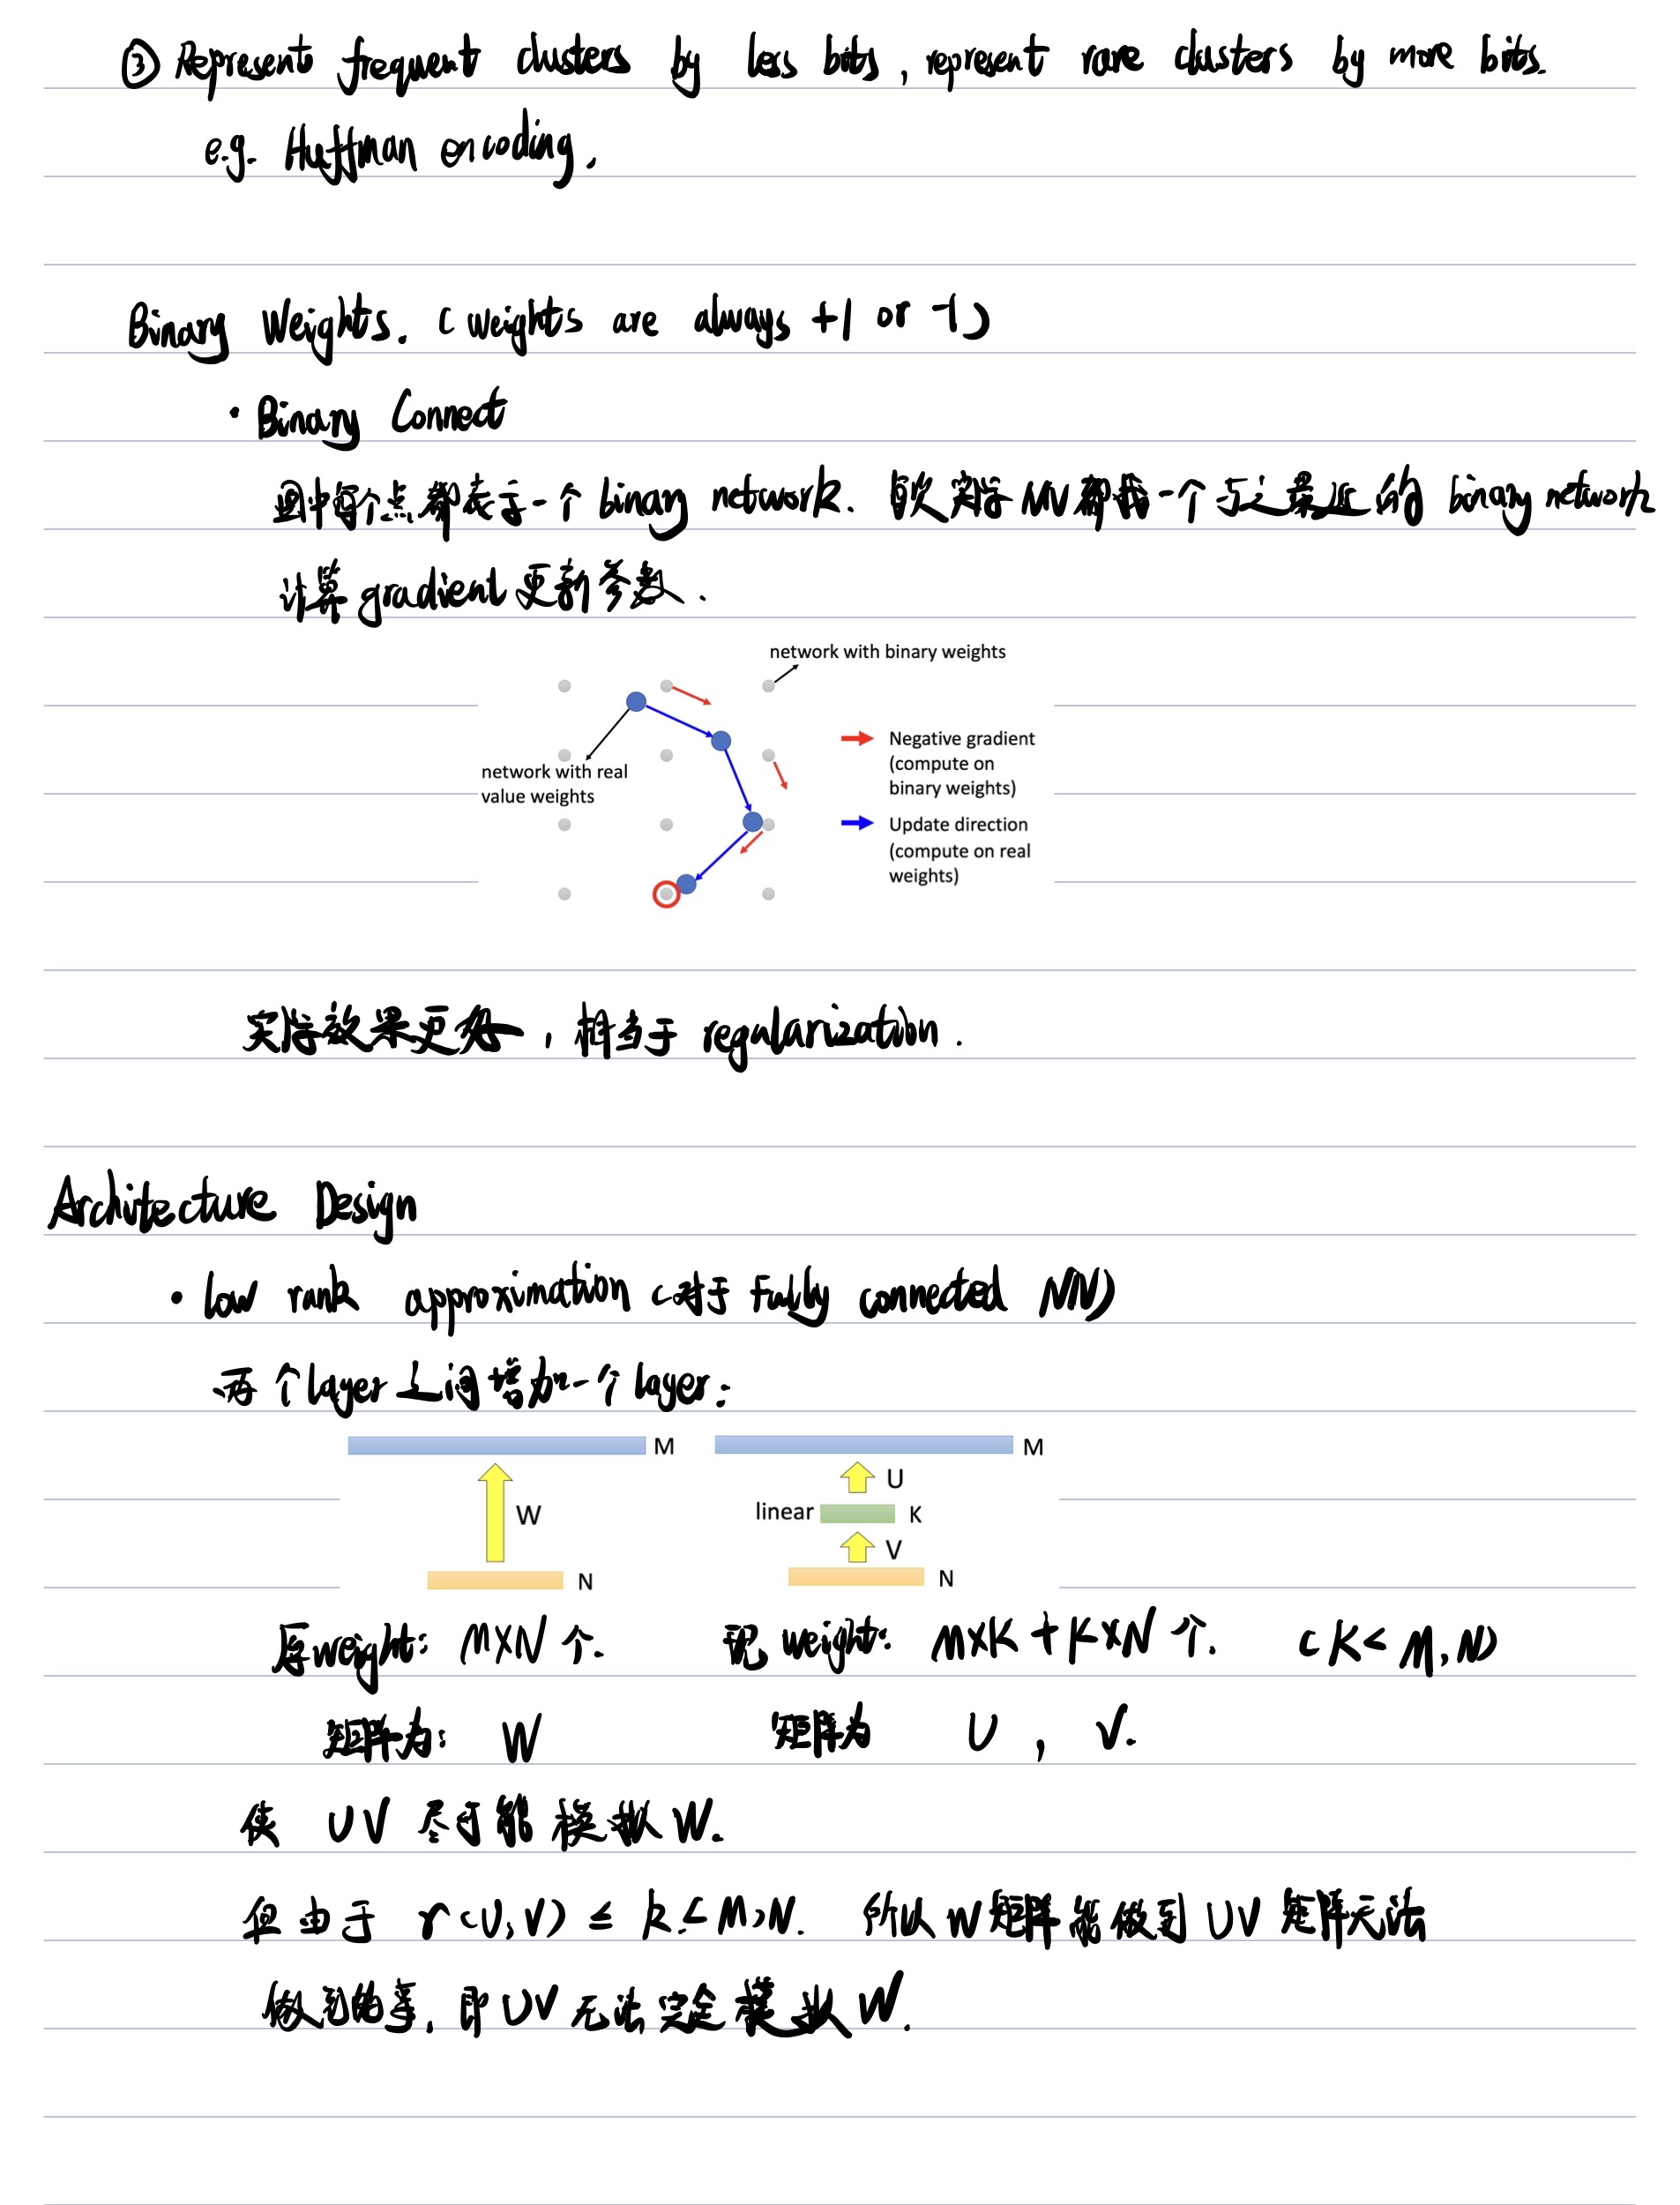 ③ Represent frequent clusters by less bits, represent rare clusters by more bits.
e.g. Huffman encoding.
Binary Weights. (weights are always +1 or -1)
· Binary Connect
图中每个点都表示一个 binary network. 每次实际NN都找一个与之最近的 binary network
计算gradient更新参数.
network with binary weights
network with real
value weights
Negative gradient
(compute on
binary weights)
Update direction
(compute on real
weights)
实际效果更好, 相当于 regularization.
Architecture Design
· low rank approximation (对于 fully connected NN)
两个layer之间增加一个layer:
M
W
N
M
U
linear
K
V
N
原weight: M×N个.
现weight: M×K+K×N个. (K<M,N)
矩阵为: W
矩阵为 U, V.
使 UV 尽可能模拟W.
但由于 r(U,V) ≤ k < M,N. 所以W矩阵能做到UV矩阵无法
做到的事, 即UV无法完全模拟W.